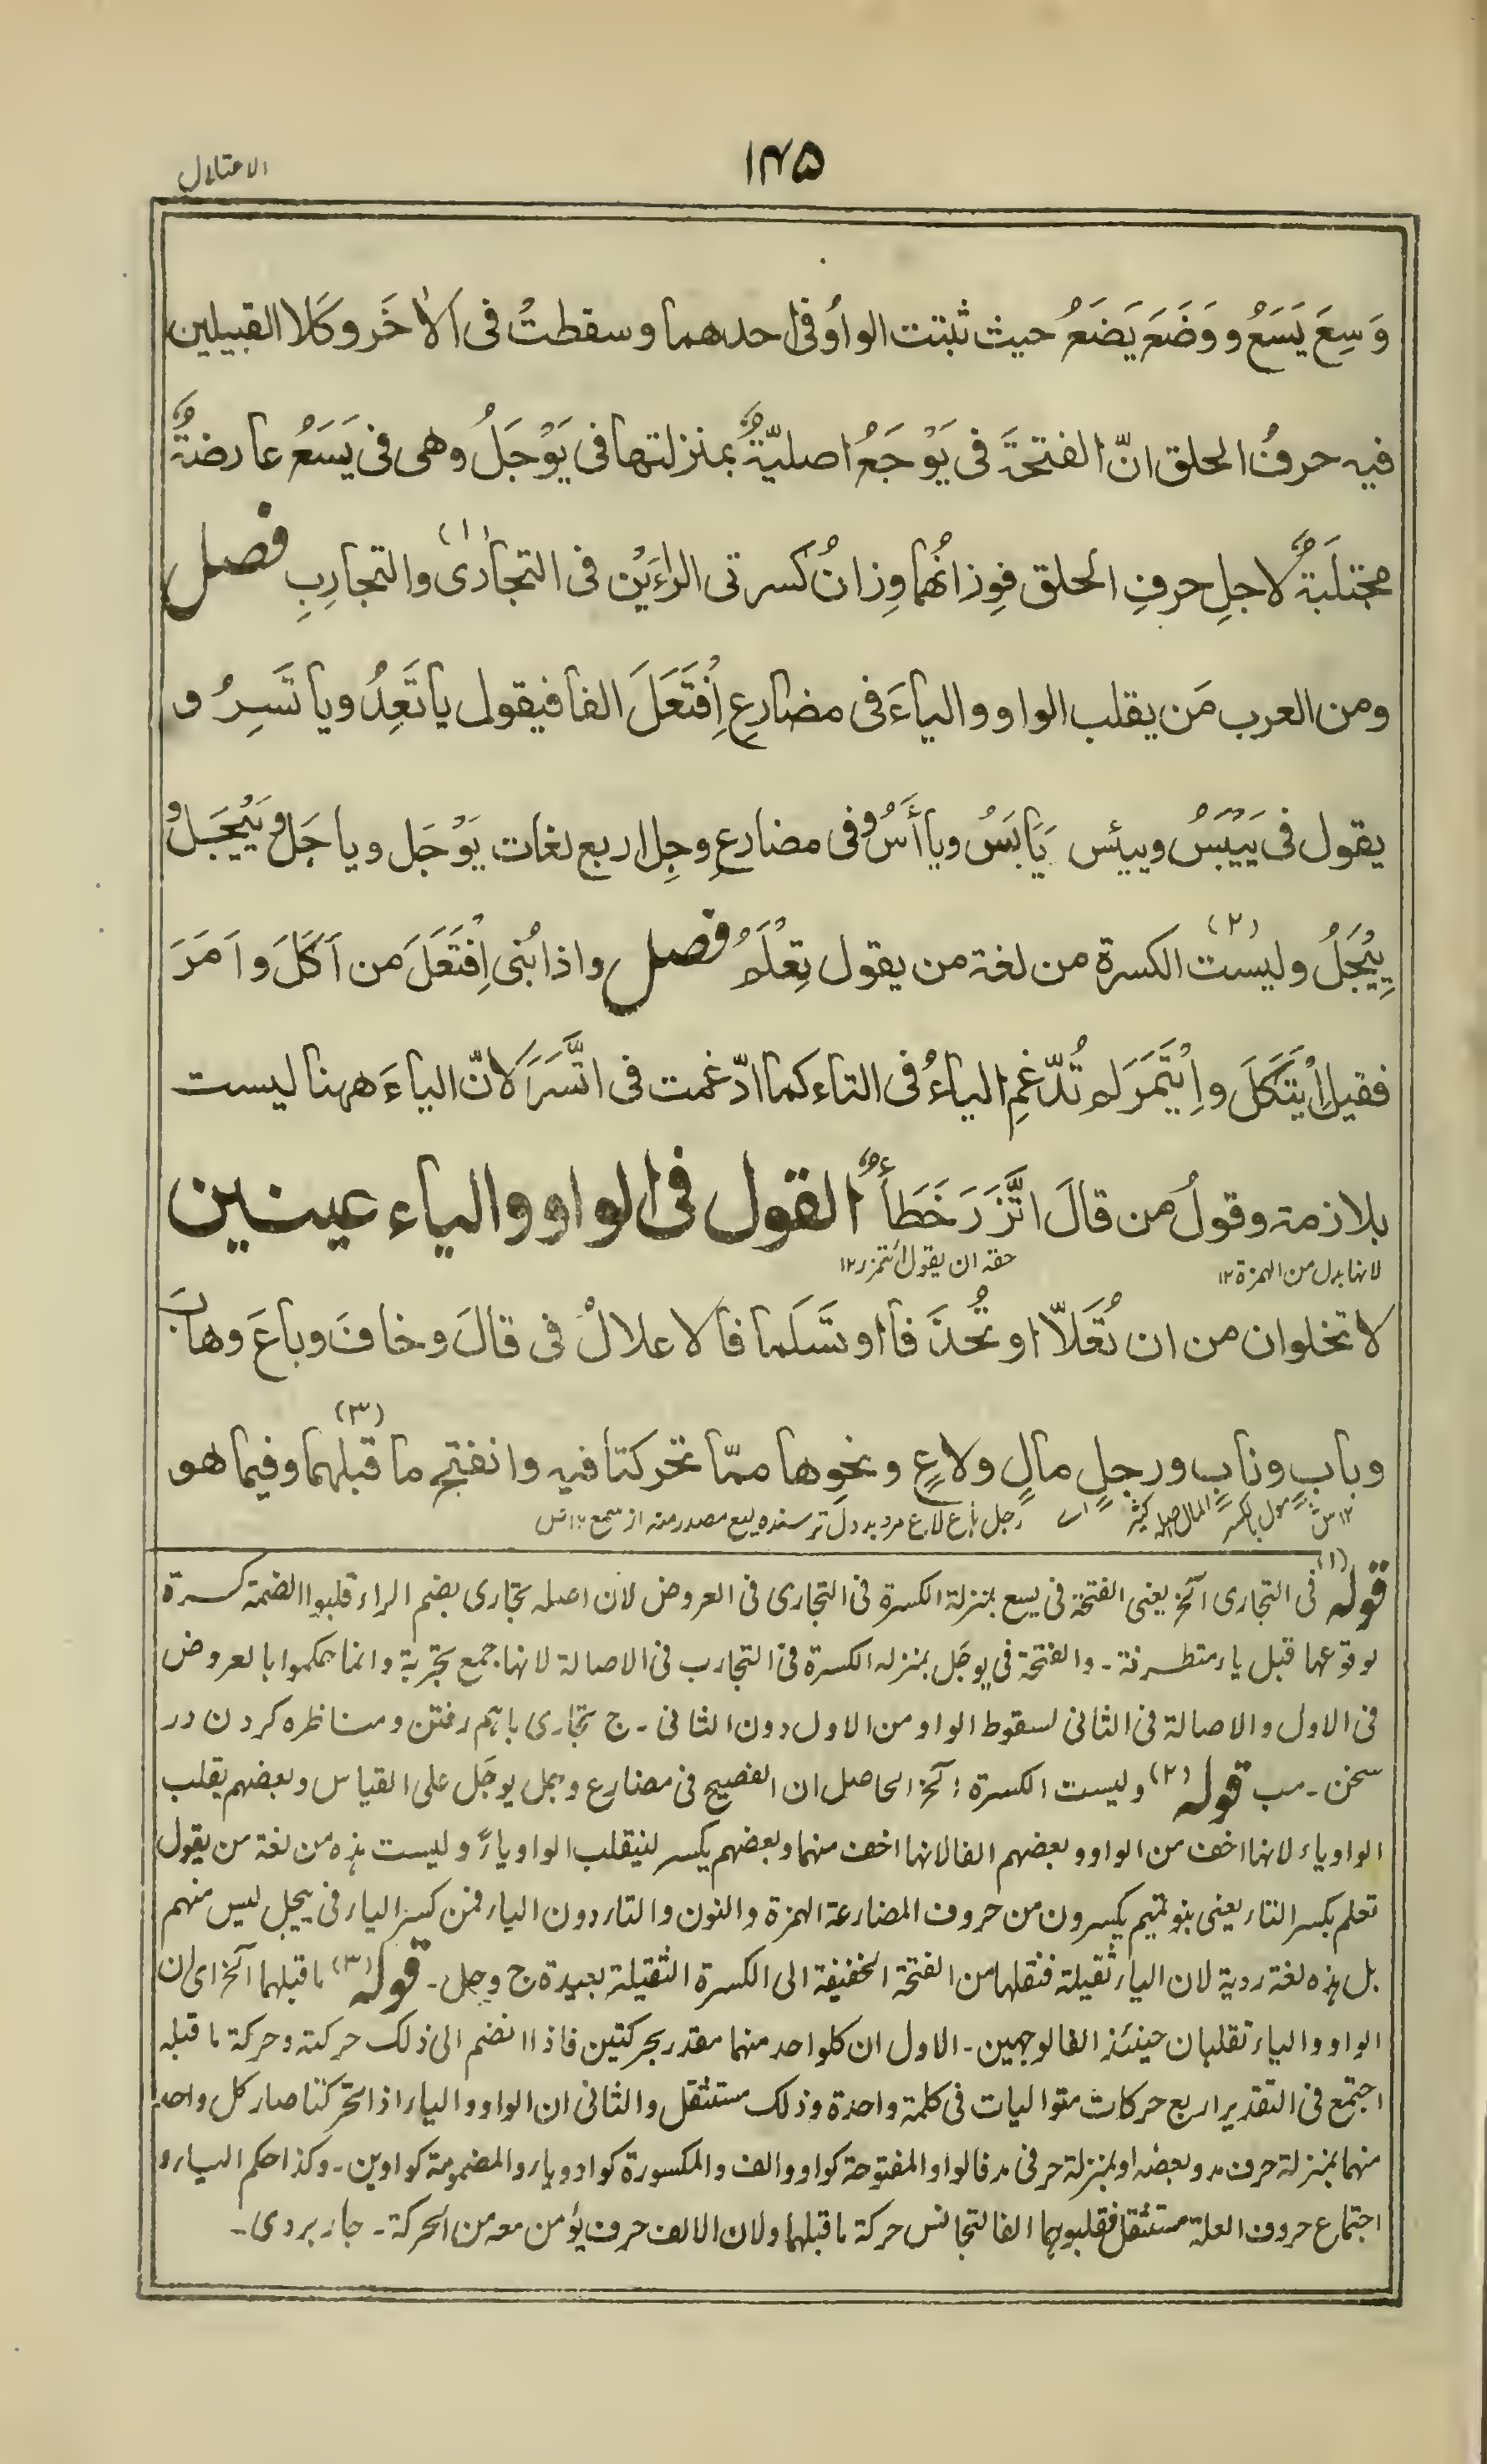 ١٢٥
الاعتلال
وَسِعَ يَسَعُ ووَضَعَ يَضَعُ حيث ثبتت الواوُ فى احدهما وسقطتْ فى الاٰخَر وكَلا القبيلين
فيه حرفُ الحلق انّ الفتحةَ فى يَوْجَعُ اصليّةٌ بمنزلتها فى يَوْجَلُ وهى فى يَسَعُ عارضةٌ
مجتلَبةٌ لاجلِ حرفِ الحلق فوِزانُهُما وِزانُ كسرتى الراءَيْن فى التجارِى (١) والتجارِبِ فصل
ومن العرب مَن يقلب الواو والياءَ فى مضارعِ اِفْتَعَلَ الفا فيقول ياتَعِدُ وياتَسِرُ و
يقول فى يَيْبَسُ وييئس يَابَسُ وياأَسُ وفى مضارعِ وجِل اربع لغات يَوْجَل وياجَل ويَيْجَلُ و
يِيْجَلُ وليست (٢) الكسرة من لغة من يقول تِعْلَمُ فصل واذا بُنى اِفْتَعَلَ من اَكَلَ واَمَرَ
فقيل اِيْتَكَلَ واِيْتَمَرَ لم تُدّغمِ الياءُ فى التاء كما ادّغمت فى اتَّسَرَ لانّ الياءَ ههنا ليست
بلازمة وقولُ من قالَ اتَّزَرَ خَطَأٌ القول فى الواو والياء عينين
لانها بدل من الهمزة ١٢ حقه ان يقول ائتمزر ١٢
لا تخلوان من ان تُعَلّا او تُحْذَفا او تَسْلَما فالاعلالُ فى قالَ وخافَ وباعَ وهابَ
وبابٍ ونابٍ ورجلٍ مالٍ ولاعٍ ونحوِها ممّا تحركتا فيه وانفتح ما قبلهما (٣) وفيما هو
رجل هاع لاع مرد بد دل ترسنده يبع مصدر منه از سمع ١٢ ض
قوله (١) فى التجارى آلخ يعنى الفتحة فى يسع بمنزلة الكسرة فى التجارى فى العروض لان اصله تجارى بضم الراء قلبوا الضمة كسرة
لوقوعها قبل ياء متطرفة ۔ والفتحة فى يوجَل بمنزلة الكسرة فى التجارب فى الاصالة لانها جمع تجربة وانما حكموا بالعروض
فى الاول والاصالة فى الثانى لسقوط الواو من الاول دون الثانى ۔ ج تجارى باهم رفتن ومناظره كردن در
سخن ۔ مب قوله (٢) وليست الكسرة آلخ الحاصل ان الفصيح فى مضارع وجل يوجَل على القياس وبعضهم يقلب
الواو ياء لانها اخف من الواو وبعضهم الفا لانها اخف منهما وبعضهم يكسر لينقلب الواو ياءً وليست هذه من لغة من يقول
تعلم بكسر التاء يعنى بنو تميم يكسرون من حروف المضارعة الهمزة والنون والتاء دون الياء فمن كسر الياء فى ييجل ليس منهم
بل هذه لغة ردية لان الياء ثقيلة فنقلها من الفتحة الخفيفة الى الكسرة الثقيلة بعيدة ج وجل ۔ قوله (٣) ما قبلهما آلخ اى ان
الواو والياء تقلبان حينئذ الفا لوجهين ۔ الاول ان كلواحد منهما مقدر بحركتين فاذا انضم الى ذلك حركته وحركة ما قبله
اجتمع فى التقدير اربع حركات متواليات فى كلمة واحدة وذلك مستثقل والثانى ان الواو والياء اذا تحركتا صار كل واحد
منهما بمنزلة حرف مد وبعضه او بمنزلة حرفى مد فالواو المفتوحة كواو والف والمكسورة كواو وياء والمضمومة كواوين ۔ وكذا حكم الياء و
اجتماع حروف العلة مستثقل فقلبوهما الفا لتجانس حركة ما قبلهما ولان الالف حرف يؤمن معه من الحركة ۔ جاربردى ۔